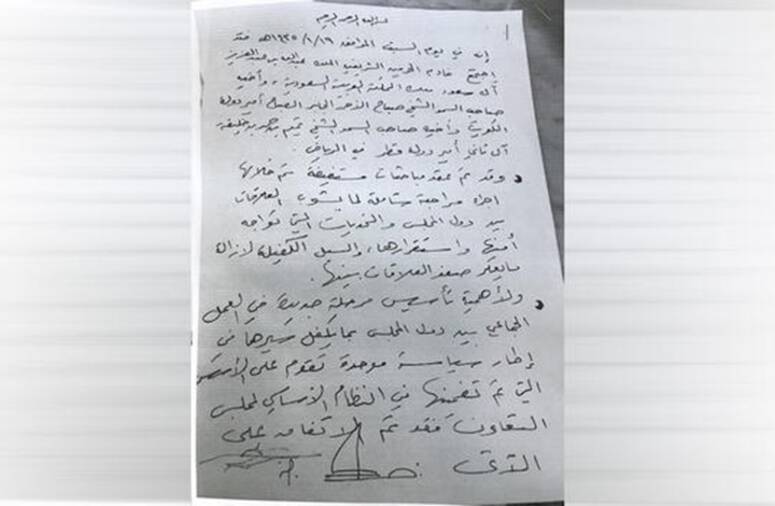 بسم الله الرحمن الرحيم
إنه في يوم السبت الموافق ١٤٣٥/١/١٩هـ فقد
اجتمع خادم الحرمين الشريفين الملك عبدالله بن عبدالعزيز
آل سعود ملك المملكة العربية السعودية، وأخيه
صاحب السمو الشيخ صباح الأحمد الجابر الصباح أمير دولة
الكويت وأخيه صاحب السمو الشيخ تميم بن حمد بن خليفة
آل ثاني أمير دولة قطر في الرياض.
وقد تم عقد مباحثات مستفيضة تم خلالها
اجراء مراجعة شاملة لما يشوب العلاقات
بين دول المجلس والتحديات التي تواجه
أمنها واستقرارها، والسبل الكفيلة لازالة
ما يعكر صفو العلاقات بينها.
ولأهمية تأسيس مرحلة جديدة في العمل
الجماعي بين دول المجلس بما يكفل سيرها في
إطار سياسة موحدة تقوم على الأسس
التي تم تضمينها في النظام الأساسي لمجلس
التعاون فقد تم الاتفاق على
الآتي